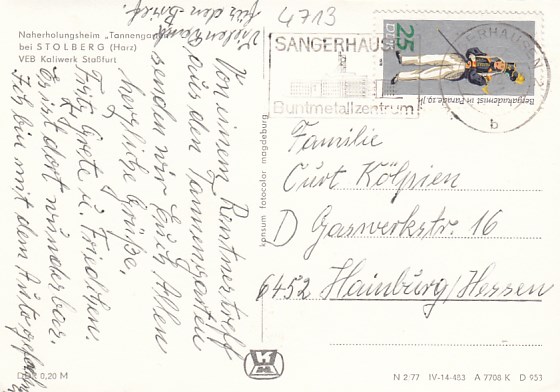 4713
Naherholungsheim „Tannengarten"
bei STOLBERG (Harz)
VEB Kaliwerk Staßfurt
SANGERHAUSEN
Buntmetallzentrum
SANGERHAUSEN
b
DDR
25
Bergakademist in Parade 19. Jh.
Vielen Dank
für den Brief.
Von einem Rentnertreff
aus den Tannengarten
senden wir Euch Allen
herzliche Grüße.
Fritz, Grete u. Friedchen.
Es ist dort wunderbar.
Ich bin mit dem Auto
konsum fotocolor magdeburg
Familie
Curt Kölpien
D Gaswerkstr. 16
6452 Hainburg/Hessen
DDR 0,20 M
N 2/77 IV-14-483 A 7708 K D 953